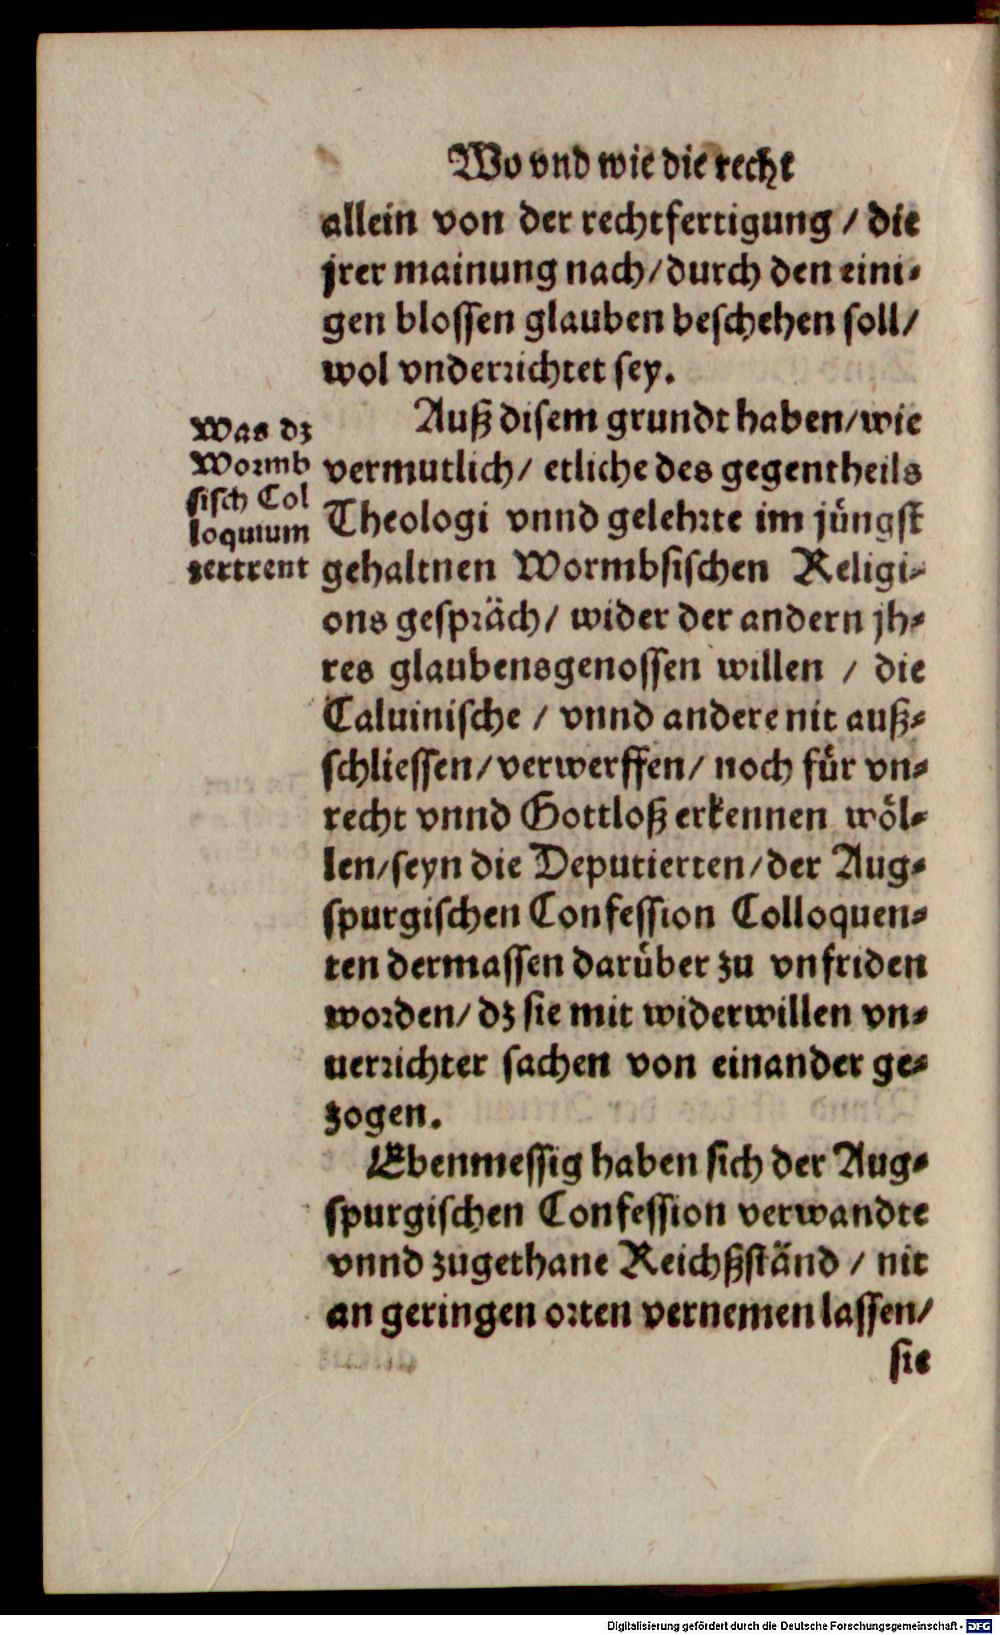 Wo vnd wie die recht
allein von der rechtfertigung / die
jrer mainung nach/durch den eini-
gen blossen glauben beschehen soll/
wol vnderrichtet sey.
Auß disem grundt haben/wie
vermutlich/ etliche des gegentheils
Theologi vnnd gelehrte im jüngst
gehaltnen Wormbsischen Religi-
ons gespräch/ wider der andern jh-
res glaubensgenossen willen / die
Caluinische / vnnd andere nit auß-
schliessen/verwerffen/ noch für vn-
recht vnnd Gottloß erkennen wöl-
len/seyn die Deputierten/der Aug-
spurgischen Confession Colloquen-
ten dermassen darüber zu vnfriden
worden/ dz sie mit widerwillen vn-
uerrichter sachen von einander ge-
zogen.
Ebenmessig haben sich der Aug-
spurgischen Confession verwandte
vnnd zugethane Reichßständ / nit
an geringen orten vernemen lassen/
sie
Was dz
Wormb
sisch Col
loquium
zertrent
Digitalisierung gefördert durch die Deutsche Forschungsgemeinschaft - DFG